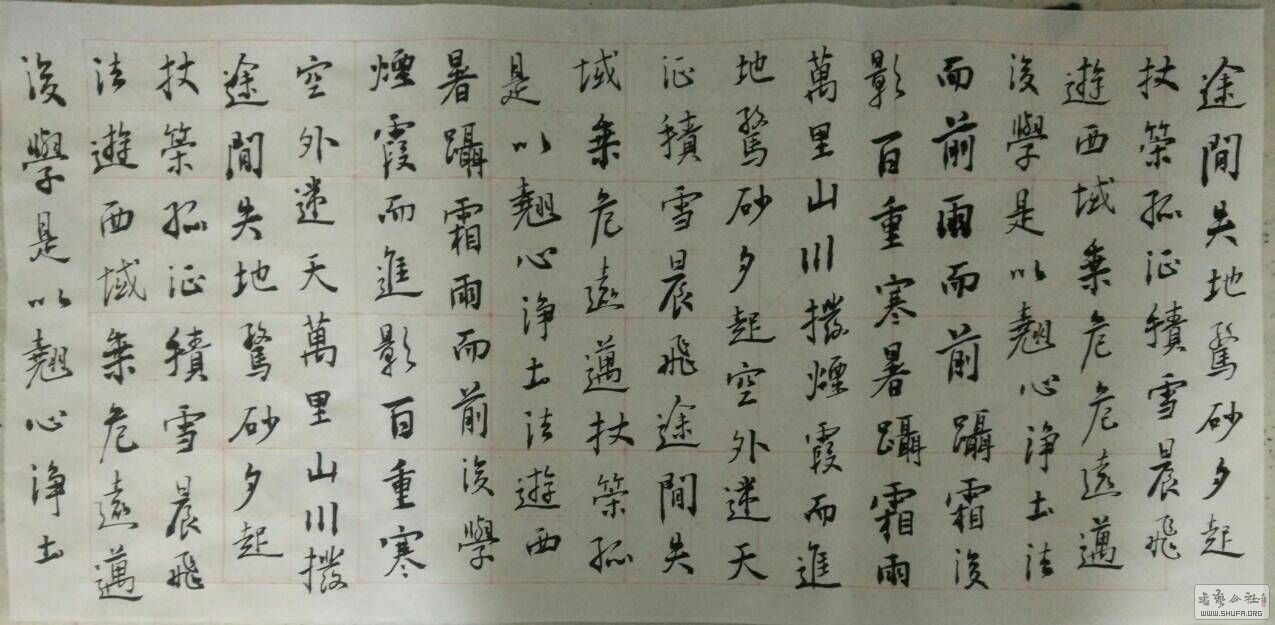 後學是以翹心淨土
法遊西域乗危遠邁
杖策孤征積雪晨飛
途間失地驚砂夕起
空外迷天萬里山川撥
煙霞而進影百重寒
暑躡霜雨而前後學
是以翹心淨土法遊西
域乗危遠邁杖策孤
征積雪晨飛途間失
地驚砂夕起空外迷天
萬里山川撥煙霞而進
影百重寒暑躡霜雨
而前雨而前躡霜後
後學是以翹心淨土法
遊西域乗危危遠邁
杖策孤征積雪晨飛
途間失地驚砂夕起
書藝公社
WWW.SHUFA.ORG